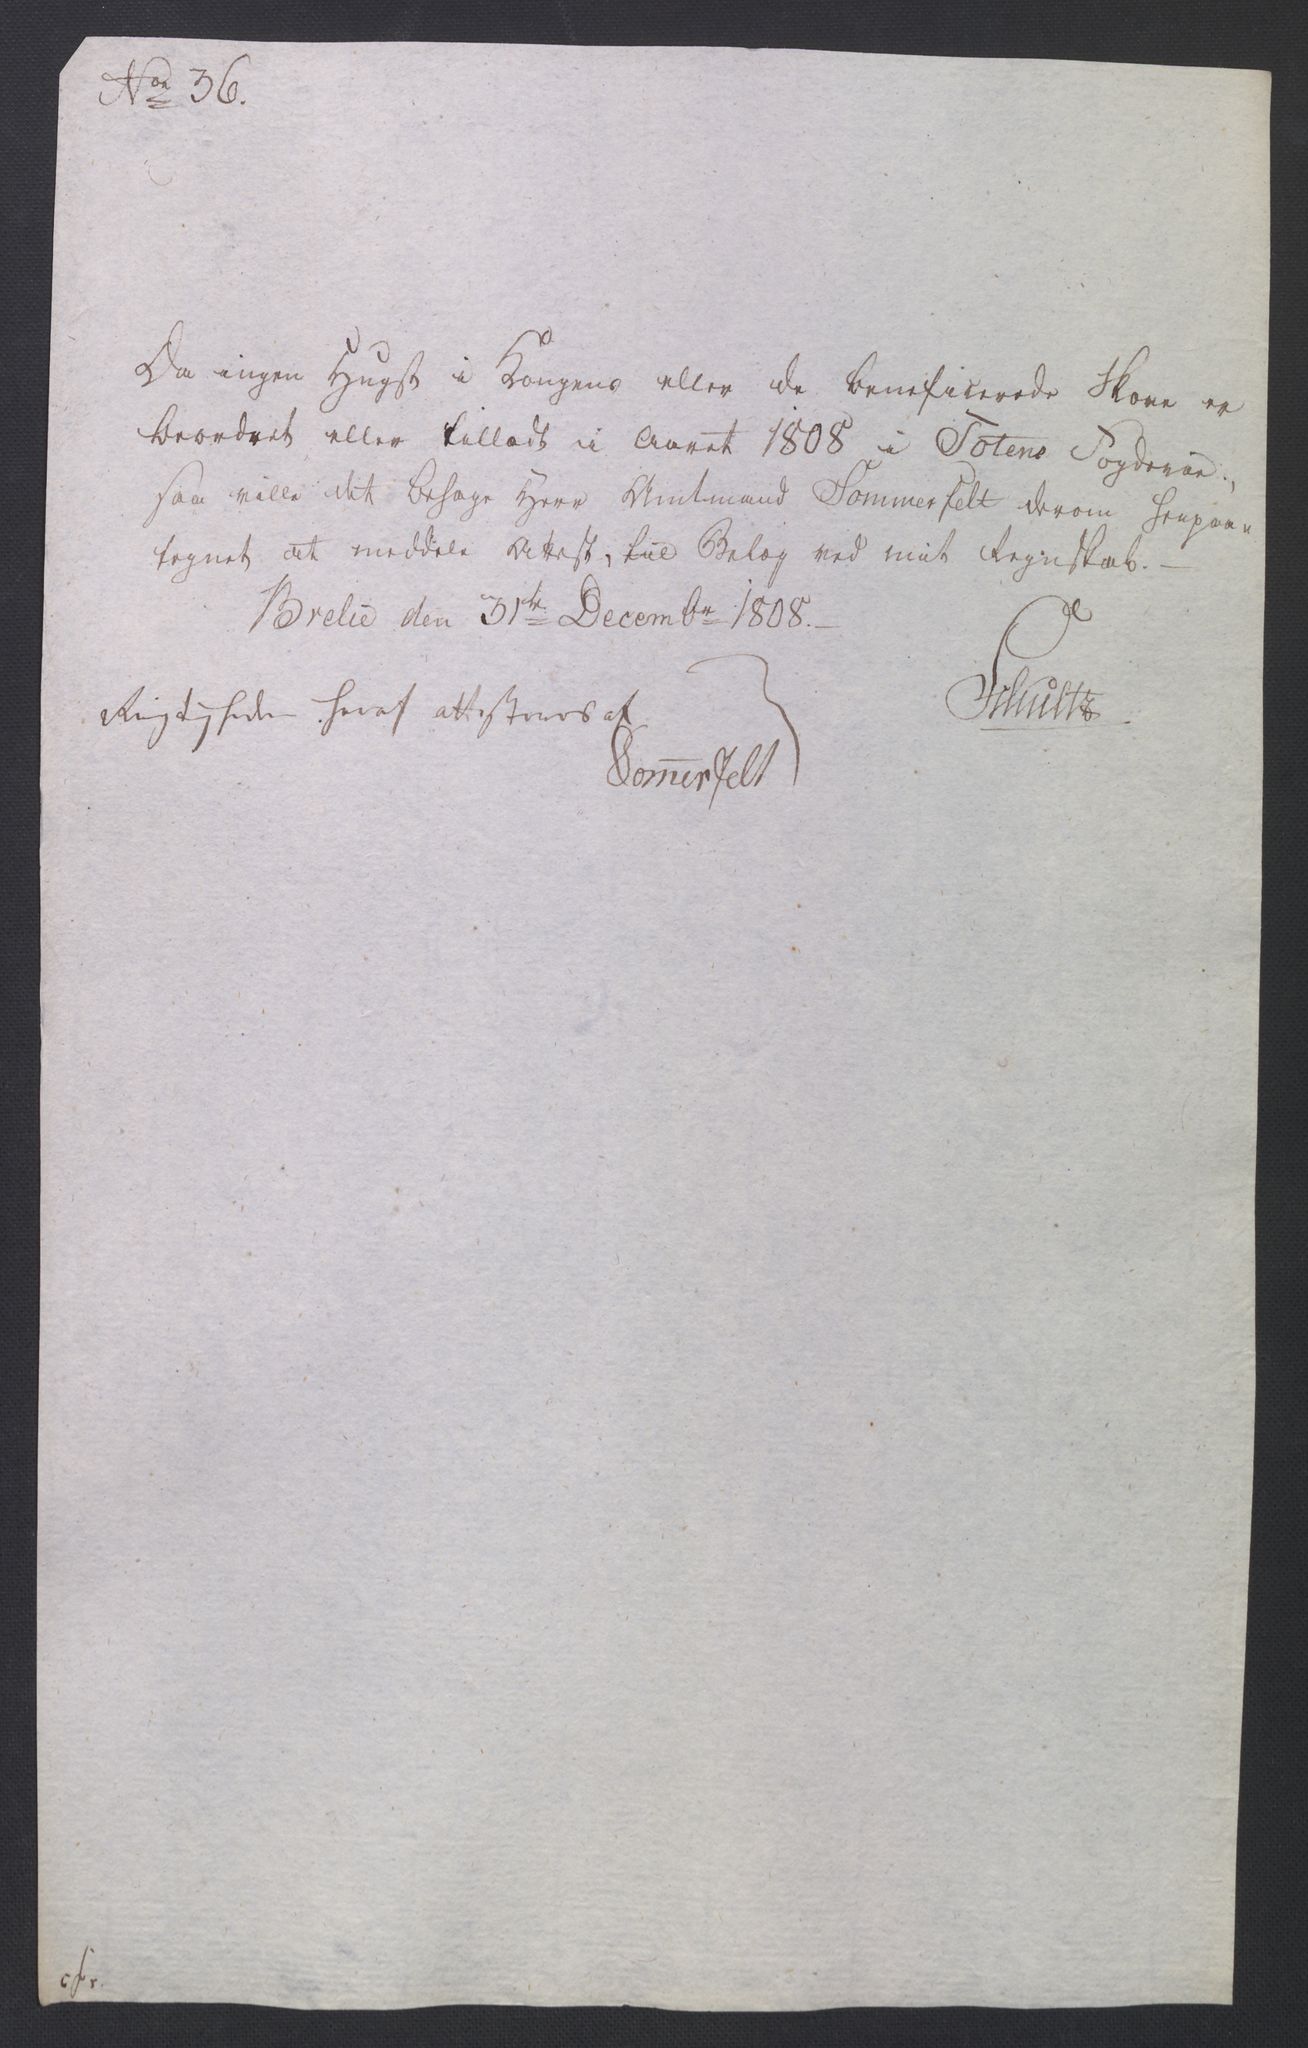 No 36.
Da ingen Hugst i Kongens eller de beneficerede Skove er
beordret eller tilladt i Aaret 1808 i Totens Fogderie,
saa ville det behage Herr Amtmand Sommerfelt derom henpaa
tegnet at meddele Attest, til Belæg ved mit Regnskab. —
Brelie den 31te Decembr 1808. —
Schultz
Rigtigheden heraf attesteres af
Somerfelt
cfr.